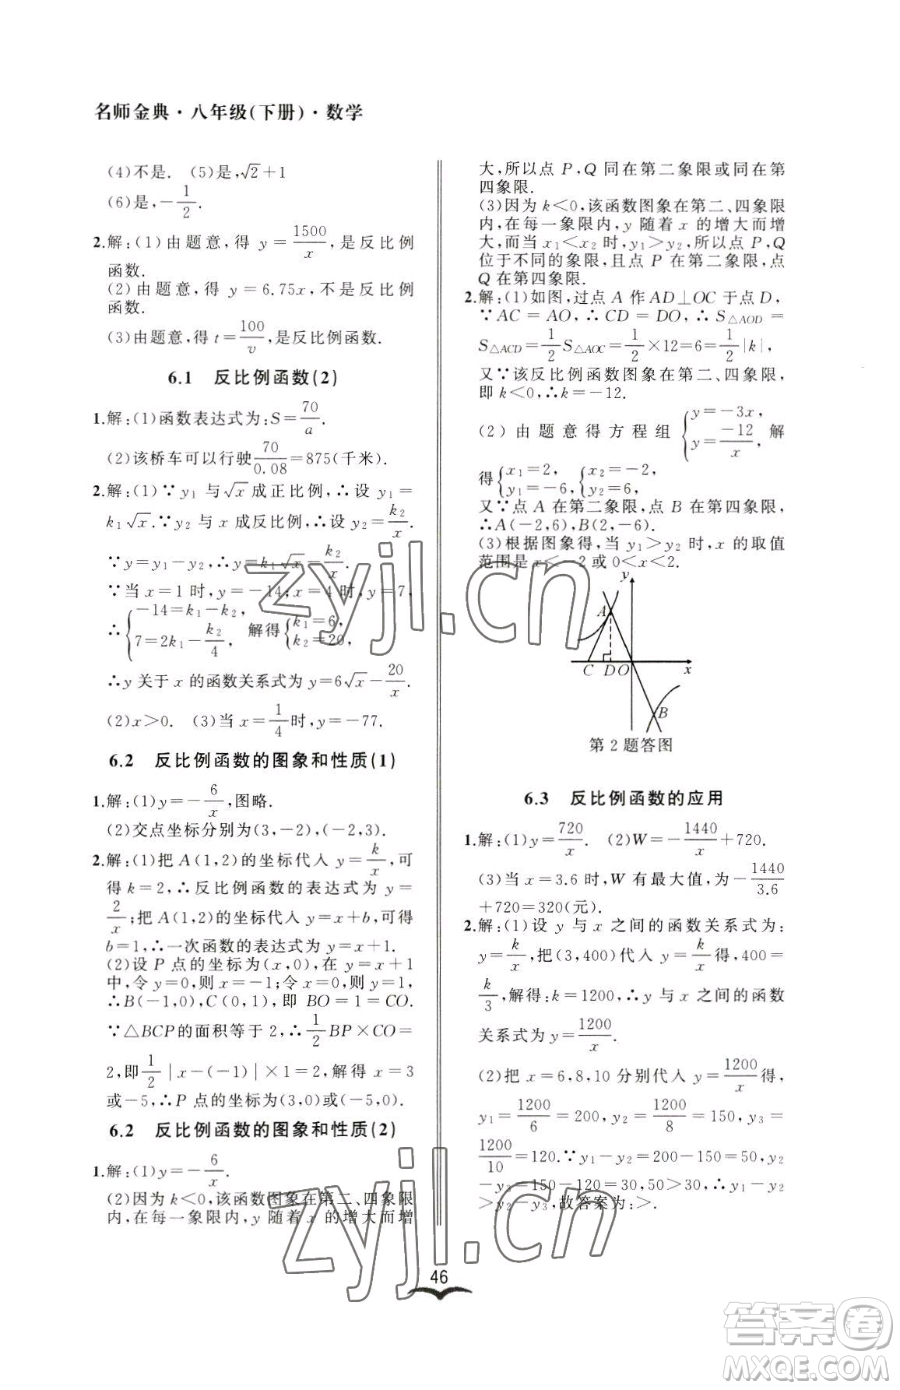 名师金典·八年级(下册)·数学
(4)不是. (5)是,√2+1
(6)是,-1/2.
2.解:(1)由题意,得 y=1500/x,是反比例
函数.
(2)由题意,得 y=6.75x,不是反比例
函数.
(3)由题意,得 t=100/v,是反比例函数.
6.1 反比例函数(2)
1.解:(1)函数表达式为:S=70/a
(2)该桥车可以行驶70/0.08=875(千米).
2.解:(1)∵y₁ 与√x成正比例,∴设 y₁=
k₁√x.∵y₂ 与 x 成反比例,∴设 y₂=k₂/x.
∵y=y₁-y₂,∴y=k₁√x-k₂/x.
∵当 x=1 时,y=-14;x=4 时,y=7,
∴{-14=k₁-k₂, 7=2k₁-k₂/4, 解得{k₁=6, k₂=20,
∴y 关于 x 的函数关系式为 y=6√x-20/x.
(2)x>0. (3)当 x=1/4时,y=-77.
6.2 反比例函数的图象和性质(1)
1.解:(1)y=-6/x,图略.
(2)交点坐标分别为(3,-2),(-2,3).
2.解:(1)把 A(1,2)的坐标代入 y=k/x,可
得 k=2,∴反比例函数的表达式为 y=
2/x;把 A(1,2)的坐标代入 y=x+b,可得
b=1,∴一次函数的表达式为 y=x+1.
(2)设 P 点的坐标为(x,0),在 y=x+1
中,令 y=0,则 x=-1;令 x=0,则 y=1,
∴B(-1,0),C(0,1),即 BO=1=CO.
∵△BCP的面积等于 2,∴1/2BP×CO=
2,即1/2|x-(-1)|×1=2,解得:x=3
或-5,∴P 点的坐标为(3,0)或(-5,0).
6.2 反比例函数的图象和性质(2)
1.解:(1)y=-6/x.
(2)因为 k<0,该函数图象在第二、四象限
内,在每一象限内,y 随着 x 的增大而增
大,所以点 P,Q 同在第二象限或同在第
四象限.
(3)因为 k<0,该函数图象在第二、四象限
内,在每一象限内,y 随着 x 的增大而增
大,而当 x₁<x₂ 时,y₁>y₂,所以点 P,Q
位于不同的象限,且点 P 在第二象限,点
Q 在第四象限.
2.解:(1)如图,过点 A 作 AD⊥OC 于点 D,
∵AC=AO,∴CD=DO,∴S△AOD=
S△ACD=1/2S△AOC=1/2×12=6=1/2|k|,
又∵该反比例函数图象在第二、四象限,
即 k<0,∴k=-12.
(2)由题意得方程组{y=-3x, y=-12/x, 解
得{x₁=2, y₁=-6, {x₂=-2, y₂=6,
又∵点 A 在第二象限,点 B 在第四象限,
∴A(-2,6),B(2,-6).
(3)根据图象得,当 y₁>y₂ 时,x 的取值
范围是 x<-2 或 0<x<2.
y
A
C D O x
B
第2题答图
6.3 反比例函数的应用
1.解:(1)y=720/x. (2)W=-1440/x+720.
(3)当 x=3.6 时,W 有最大值,为-1440/3.6
+720=320(元).
2.解:(1)设 y 与 x 之间的函数关系式为:
y=k/x,把(3,400)代入 y=k/x得,400=
k/3,解得:k=1200,∴y 与 x 之间的函数
关系式为 y=1200/x.
(2)把 x=6,8,10 分别代入 y=1200/x得,
y₁=1200/6=200,y₂=1200/8=150,y₃=
1200/10=120.∵y₁-y₂=200-150=50,
y₂-y₃=150-120=30,50>30,∴y₁-y₂
>y₂-y₃,故答案为:>.
46
zyjl.cn
zyjl.cn
答案圈
MXQE.COM